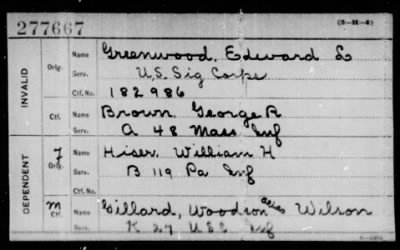 277667
(3-H-4)
INVALID
Orig. Name Greenwood, Edward L
Serv. U.S. Sig Corps
Ctf. No. 182986
Ctf. Name Brown George R
Serv. A 48 Mass Inf
DEPENDENT
F Orig. Name Hiser William H
Serv. B 119 Pa Inf
Ctf. No.
M Ctf. Name Gillard, Woodson alias Wilson
Serv. K 27 USC Inf